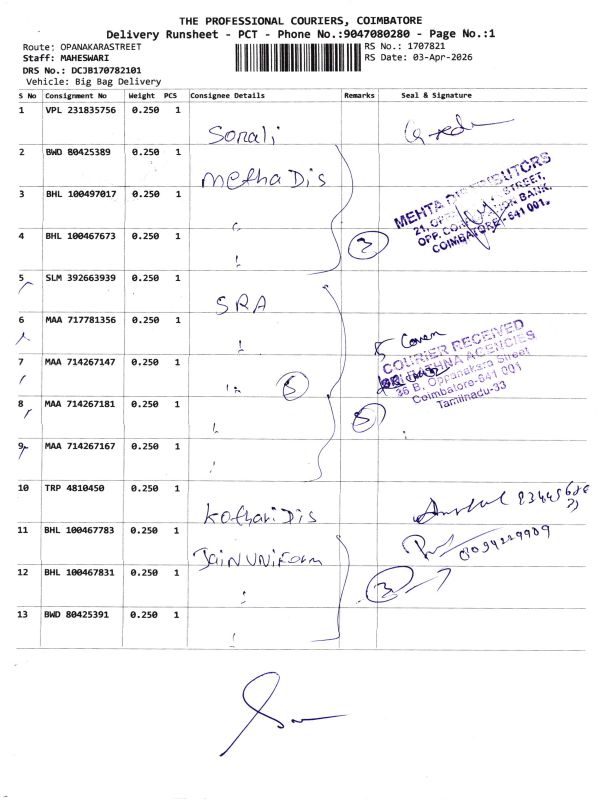 THE PROFESSIONAL COURIERS, COIMBATORE
Delivery Runsheet - PCT - Phone No.:9047080280 - Page No.:1
Route: OPANAKARASTREET
RS No.: 1707821
Staff: MAHESWARI
RS Date: 03-Apr-2026
DRS No.: DCJB170782101
Vehicle: Big Bag Delivery
S No Consignment No Weight PCS Consignee Details Remarks Seal & Signature
1 VPL 231835756 0.250 1 Sonali
2 BWD 80425389 0.250 1 Metha Dis
3 BHL 100497017 0.250 1
4 BHL 100467673 0.250 1 3
MEHTA DISTRIBUTORS
21, STREET,
OPP. BANK,
COIMBATORE - 641 001.
5 SLM 392663939 0.250 1 SRA
6 MAA 717781356 0.250 1
7 MAA 714267147 0.250 1 5
8 MAA 714267181 0.250 1 5
5 Coven
COURIER RECEIVED
RATHNA AGENCIES
36 B, Oppanakara Street
Coimbatore-641 001
Tamilnadu-33
9 MAA 714267167 0.250 1
10 TRP 4810450 0.250 1 Kothari Dis
11 BHL 100467783 0.250 1 Jain UNiForm 8094229909
12 BHL 100467831 0.250 1 3
13 BWD 80425391 0.250 1